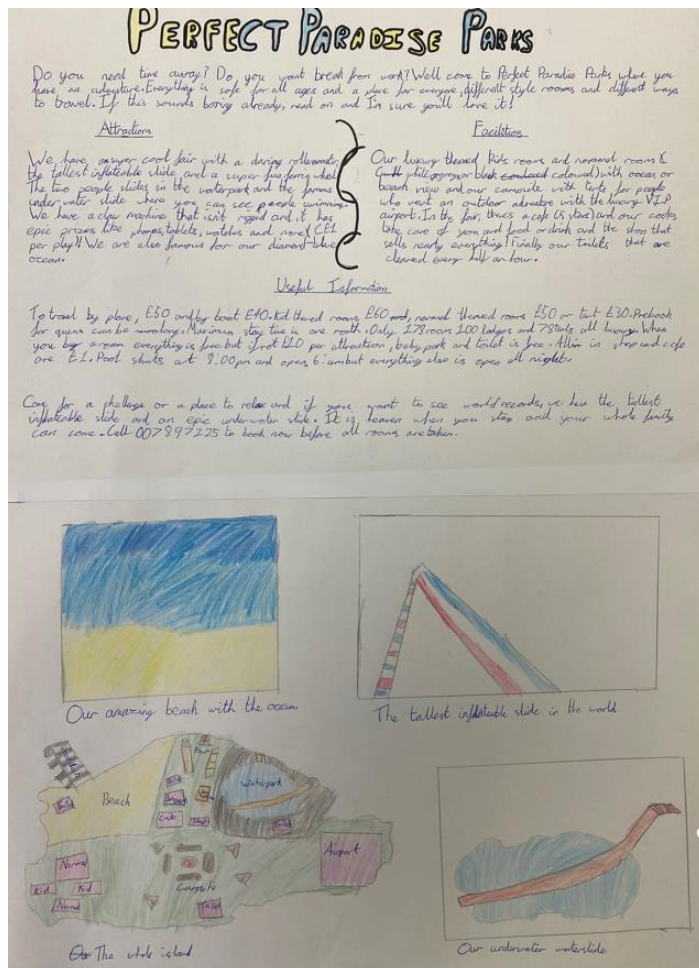 PERFECT PARADISE PARKS
Do you need time away? Do, you want break from work? Well come to Perfect Paradise Parks where you
have an adventure. Everything is safe for all ages and a place for everyone, different style rooms and different ways
to travel. If this sounds boring already, read on and I'm sure you'll love it!
Attractions
We have a super cool fair with a daring rollercoaster,
the tallest inflateable slide, and a super fun ferris wheel.
The two people slides in the waterpark and the famous
underwater slide where you can see people swimming.
We have a claw machine that isn't rigged and it has
epic prizes like phones, tablets, watches and more! (£1
per play)! We are also famous for our diamond-blue
ocean.
Facilities
Our luxury themed kids rooms and normal rooms
coloured) with ocean or
beach view and our campside with tents for people
who want an outdoor adventure with the luxury V.I.P
airport. In the fair, theres a cafe (5 stars) and our cooks
take care of you and food or drink and the shop that
sells nearly everything! Finally our toilets that are
cleaned every half an hour.
Useful Information
To travel by plane, £50 and by boat £40. Kid themed rooms £60 and, normal themed rooms £50 or tent £30. Prebook
for queus can be long. Maximum stay time is one month. Only 178 rooms 100 lodges and 78 tents all luxury. When
you buy a room everything is free but if not £10 per attraction, baby park and toilet is free. All in shop and cafe
are £1. Pool shuts at 8:00pm and opens 6:am but everything else is open all night.
Come for a challenge or a place to relax and if you want to see world records, we have the tallest
inflateable slide and an epic underwater slide. It is heaven when you stay and your whole family
can come. Call 007897125 to book now before all rooms are taken.
Our amazing beach with the ocean
The tallest inflateable slide in the world
Fair
Waterpark
Toilet
Beach
Cafe
Shop
Toilet
Airport
Normal
Kid
Kid
Normal
Campsite
Toilet
The whole island
Our underwater waterslide